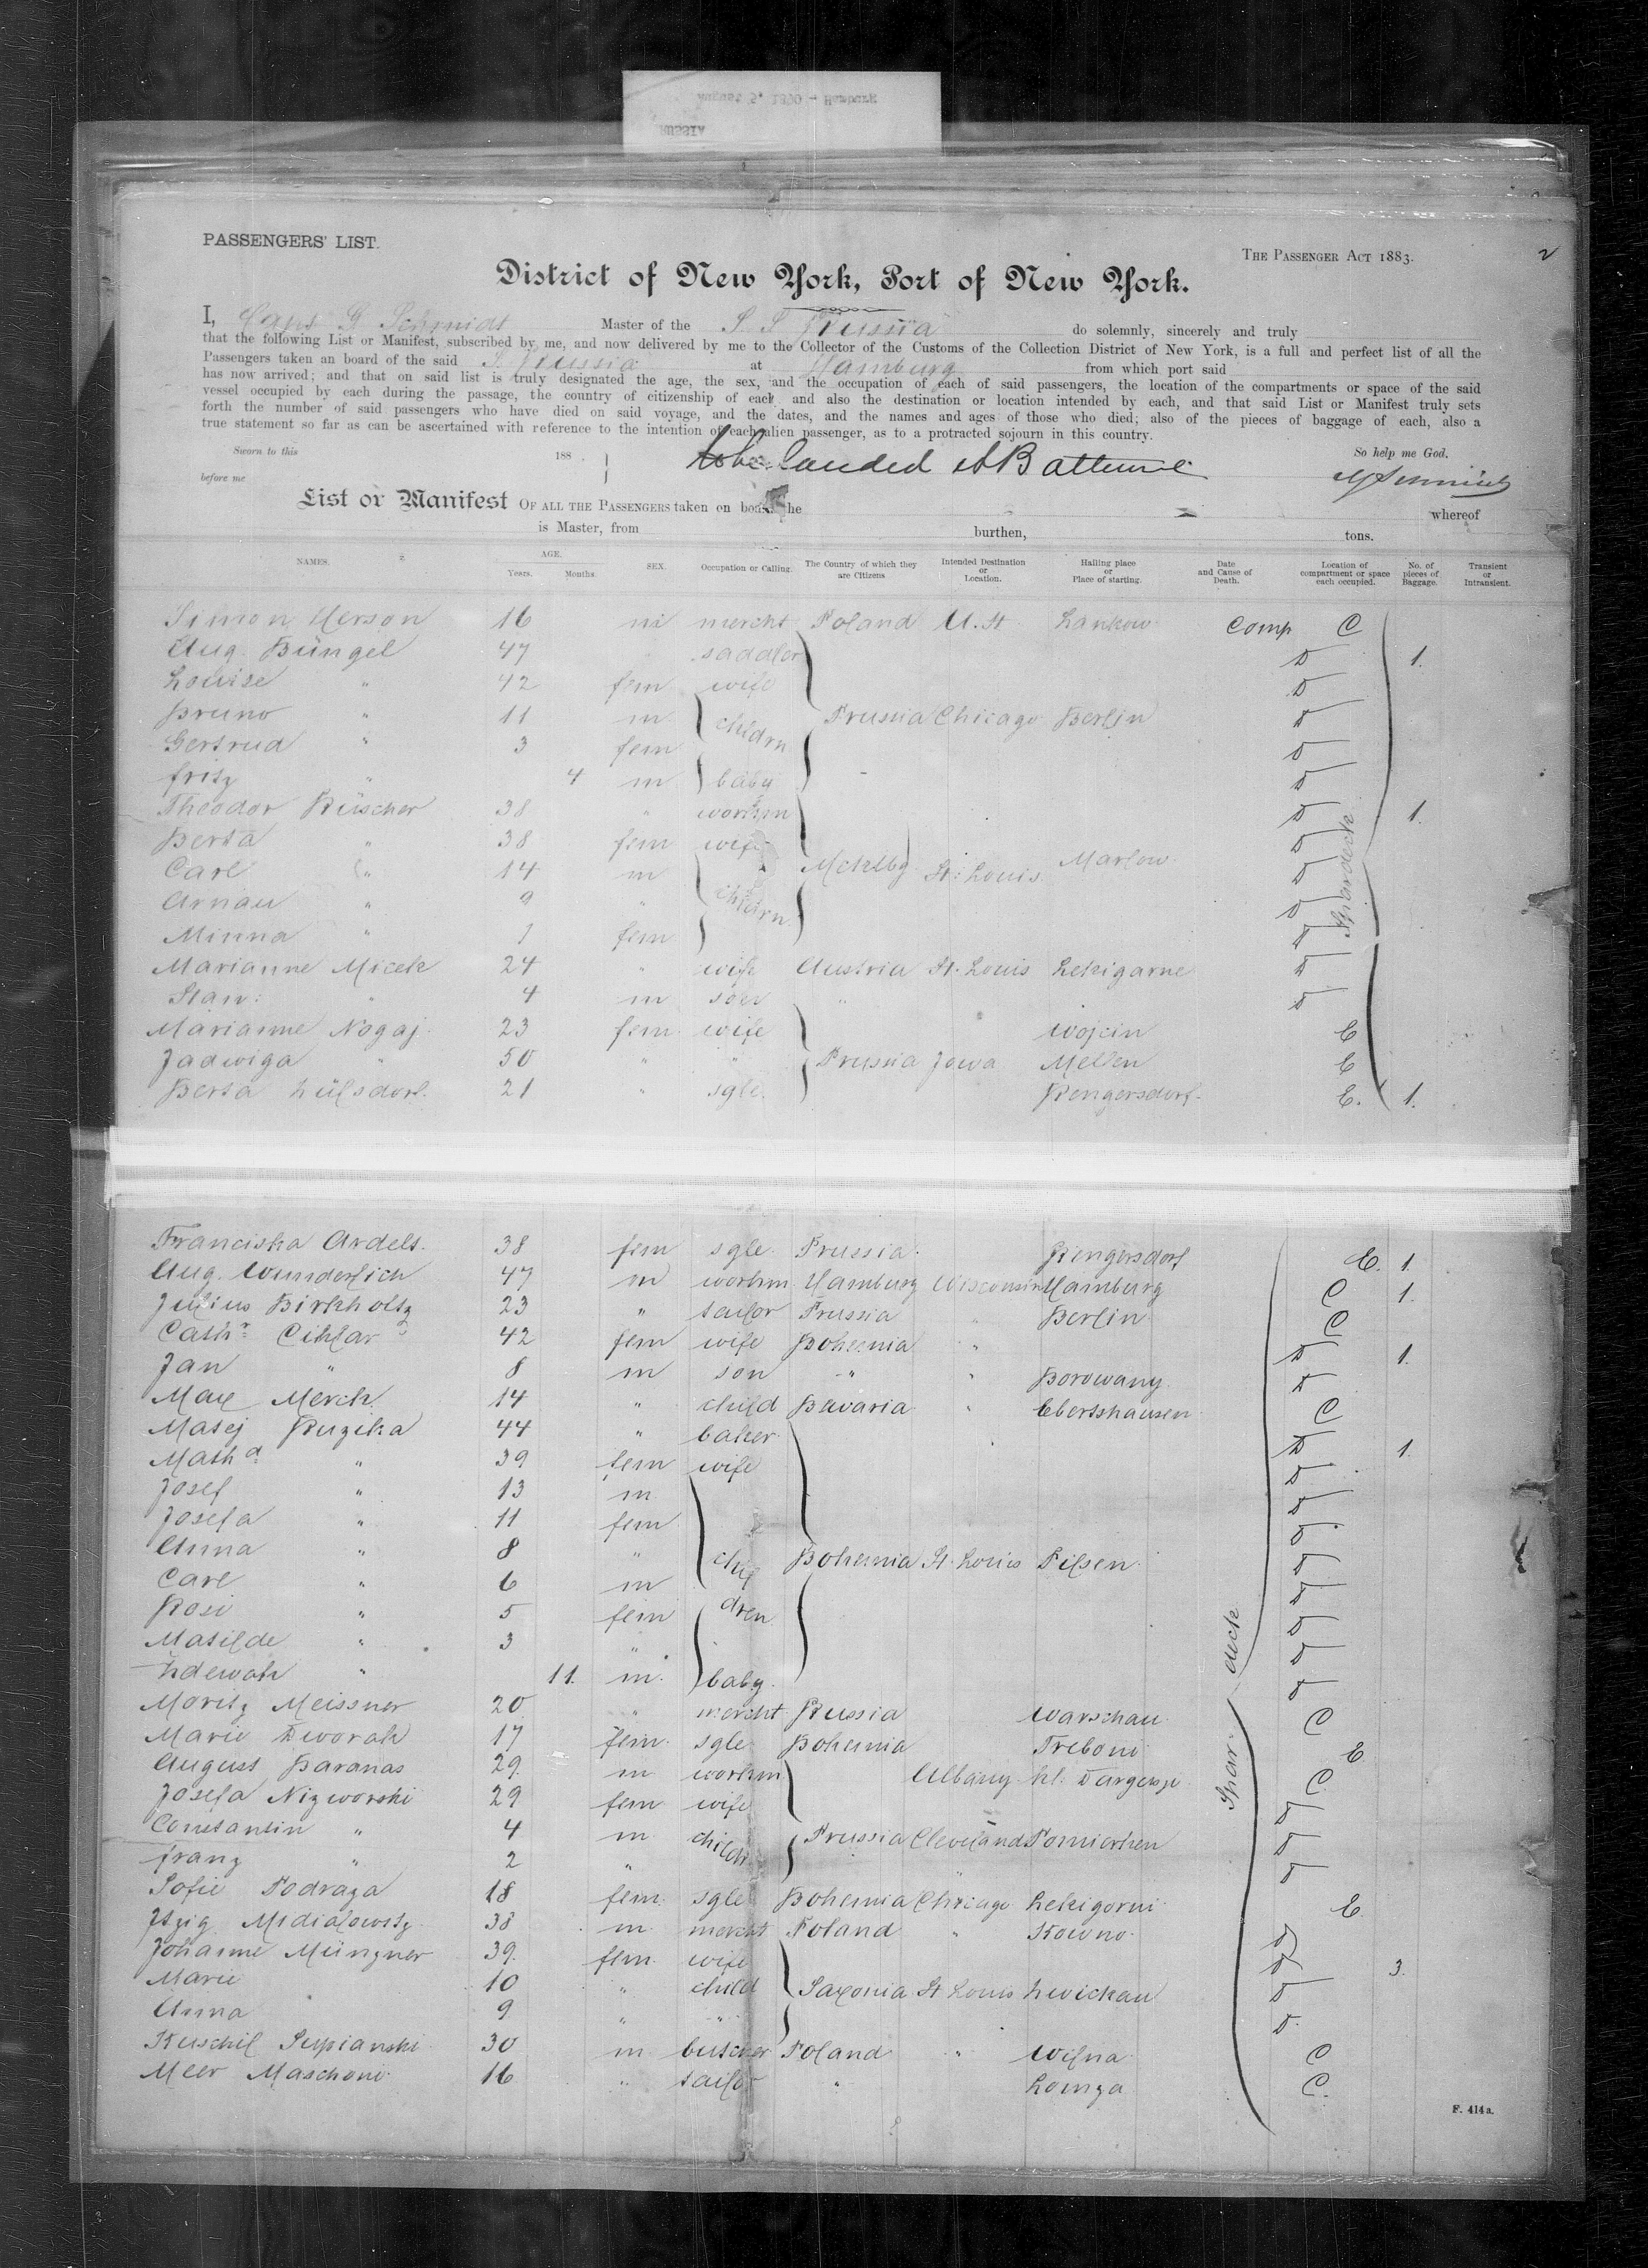 August 5, 1890 - Hamburg
RUSSIA
PASSENGERS' LIST.
THE PASSENGER ACT 1883.
2
District of New York, Port of New York.
I, Capt G Schmidt Master of the S. S Russia do solemnly, sincerely and truly
that the following List or Manifest, subscribed by me, and now delivered by me to the Collector of the Customs of the Collection District of New York, is a full and perfect list of all the
Passengers taken an board of the said S. Russia at Hamburg from which port said
has now arrived; and that on said list is truly designated the age, the sex, and the occupation of each of said passengers, the location of the compartments or space of the said
vessel occupied by each during the passage, the country of citizenship of each and also the destination or location intended by each, and that said List or Manifest truly sets
forth the number of said passengers who have died on said voyage, and the dates, and the names and ages of those who died; also of the pieces of baggage of each, also a
true statement so far as can be ascertained with reference to the intention of each alien passenger, as to a protracted sojourn in this country.
Sworn to this 188 . to be landed So help me God.
before me
List or Manifest OF ALL THE PASSENGERS taken on board the whereof
is Master, from burthen, tons.
NAMES. AGE. Years. Months. SEX. Occupation or Calling. The Country of which they are Citizens Intended Destination or Location. Halling place or Place of starting. Date and Cause of Death. Location of compartment or space each occupied. No. of pieces of Baggage. Transient or Intransient.
Simon Merson 16 m mercht Poland U. St Lankow Comp C
Aug. Büngel 47 saddler D 1.
Louise " 42 fem wife D
Bruno " 11 m childrn Prussia Chicago Berlin D
Gertrud " 3 fem D
Fritz " 4 m baby D
Theodor Rüscher 38 " workm D 1.
Berta " 38 fem wife D
Carl " 14 m childrn Mcklbg St: Louis Marlow D Spardeck
Arnau " 9 " D
Minna " 1 fem D
Marianne Micek 24 " wife Austria St. Louis Lekigarne D
Stan: " 4 m son " " D
Marianne Nogaj 23 fem wife Wojcin E
Jadwiga " 50 " " Prussia Jowa Mellen E
Berta Hülsdorf. 21 " sgle. Rengersdorf. E. 1.
Franciska Ardels. 38 fem sgle. Prussia. Rengersdorf E. 1.
Aug. Wunderlich 47 m workm. Hamburg Wisconsin Hamburg C 1.
Julius Birkholtz 23 " tailor Prussia " Berlin C
Cathr. Cihlar 42 fem wife Bohemia " D 1.
Jan " 8 m son " " Borowany D
Max Merck. 14 " child Bavaria " Ebertshausen C
Matej Ruzika 44 " baker D 1.
Matha " 39 fem wife D
Josef " 13 m D
Josefa " 11 fem D
Anna " 8 " chil Bohemia St. Louis Pilsen D
Carl " 6 m D
Rosi " 5 fem dren D
Matilde " 3 " D
Zdewak " 11. m. baby. D
Moritz Meissner 20 " mercht Russia Warschau C
Marie Dworak 17 fem. sgle. Bohemia Treboni E
August Baranas 29. m workm Albany Kl. C.
Josefa Nizworski 29 fem wife D
Constantin " 4 m childr Prussia Cleveland Pomierken D
Franz " 2 " D
Spar deck
Sofie Podraza 18 fem. sgle Bohemia Chicago Lekigorni E.
Itzig Midialowitz 38 m mercht Poland " Kowno D
Johanne Münzner 39. fem. wife D 3.
Marie " 10 " child Saxonia St Louis Zwickau D
Anna 9 " " D.
Kuschil Supianski 30 m butcher Poland " Wilna C
Meer Maschoni 16 " tailor " Lomza C.
F. 414a.